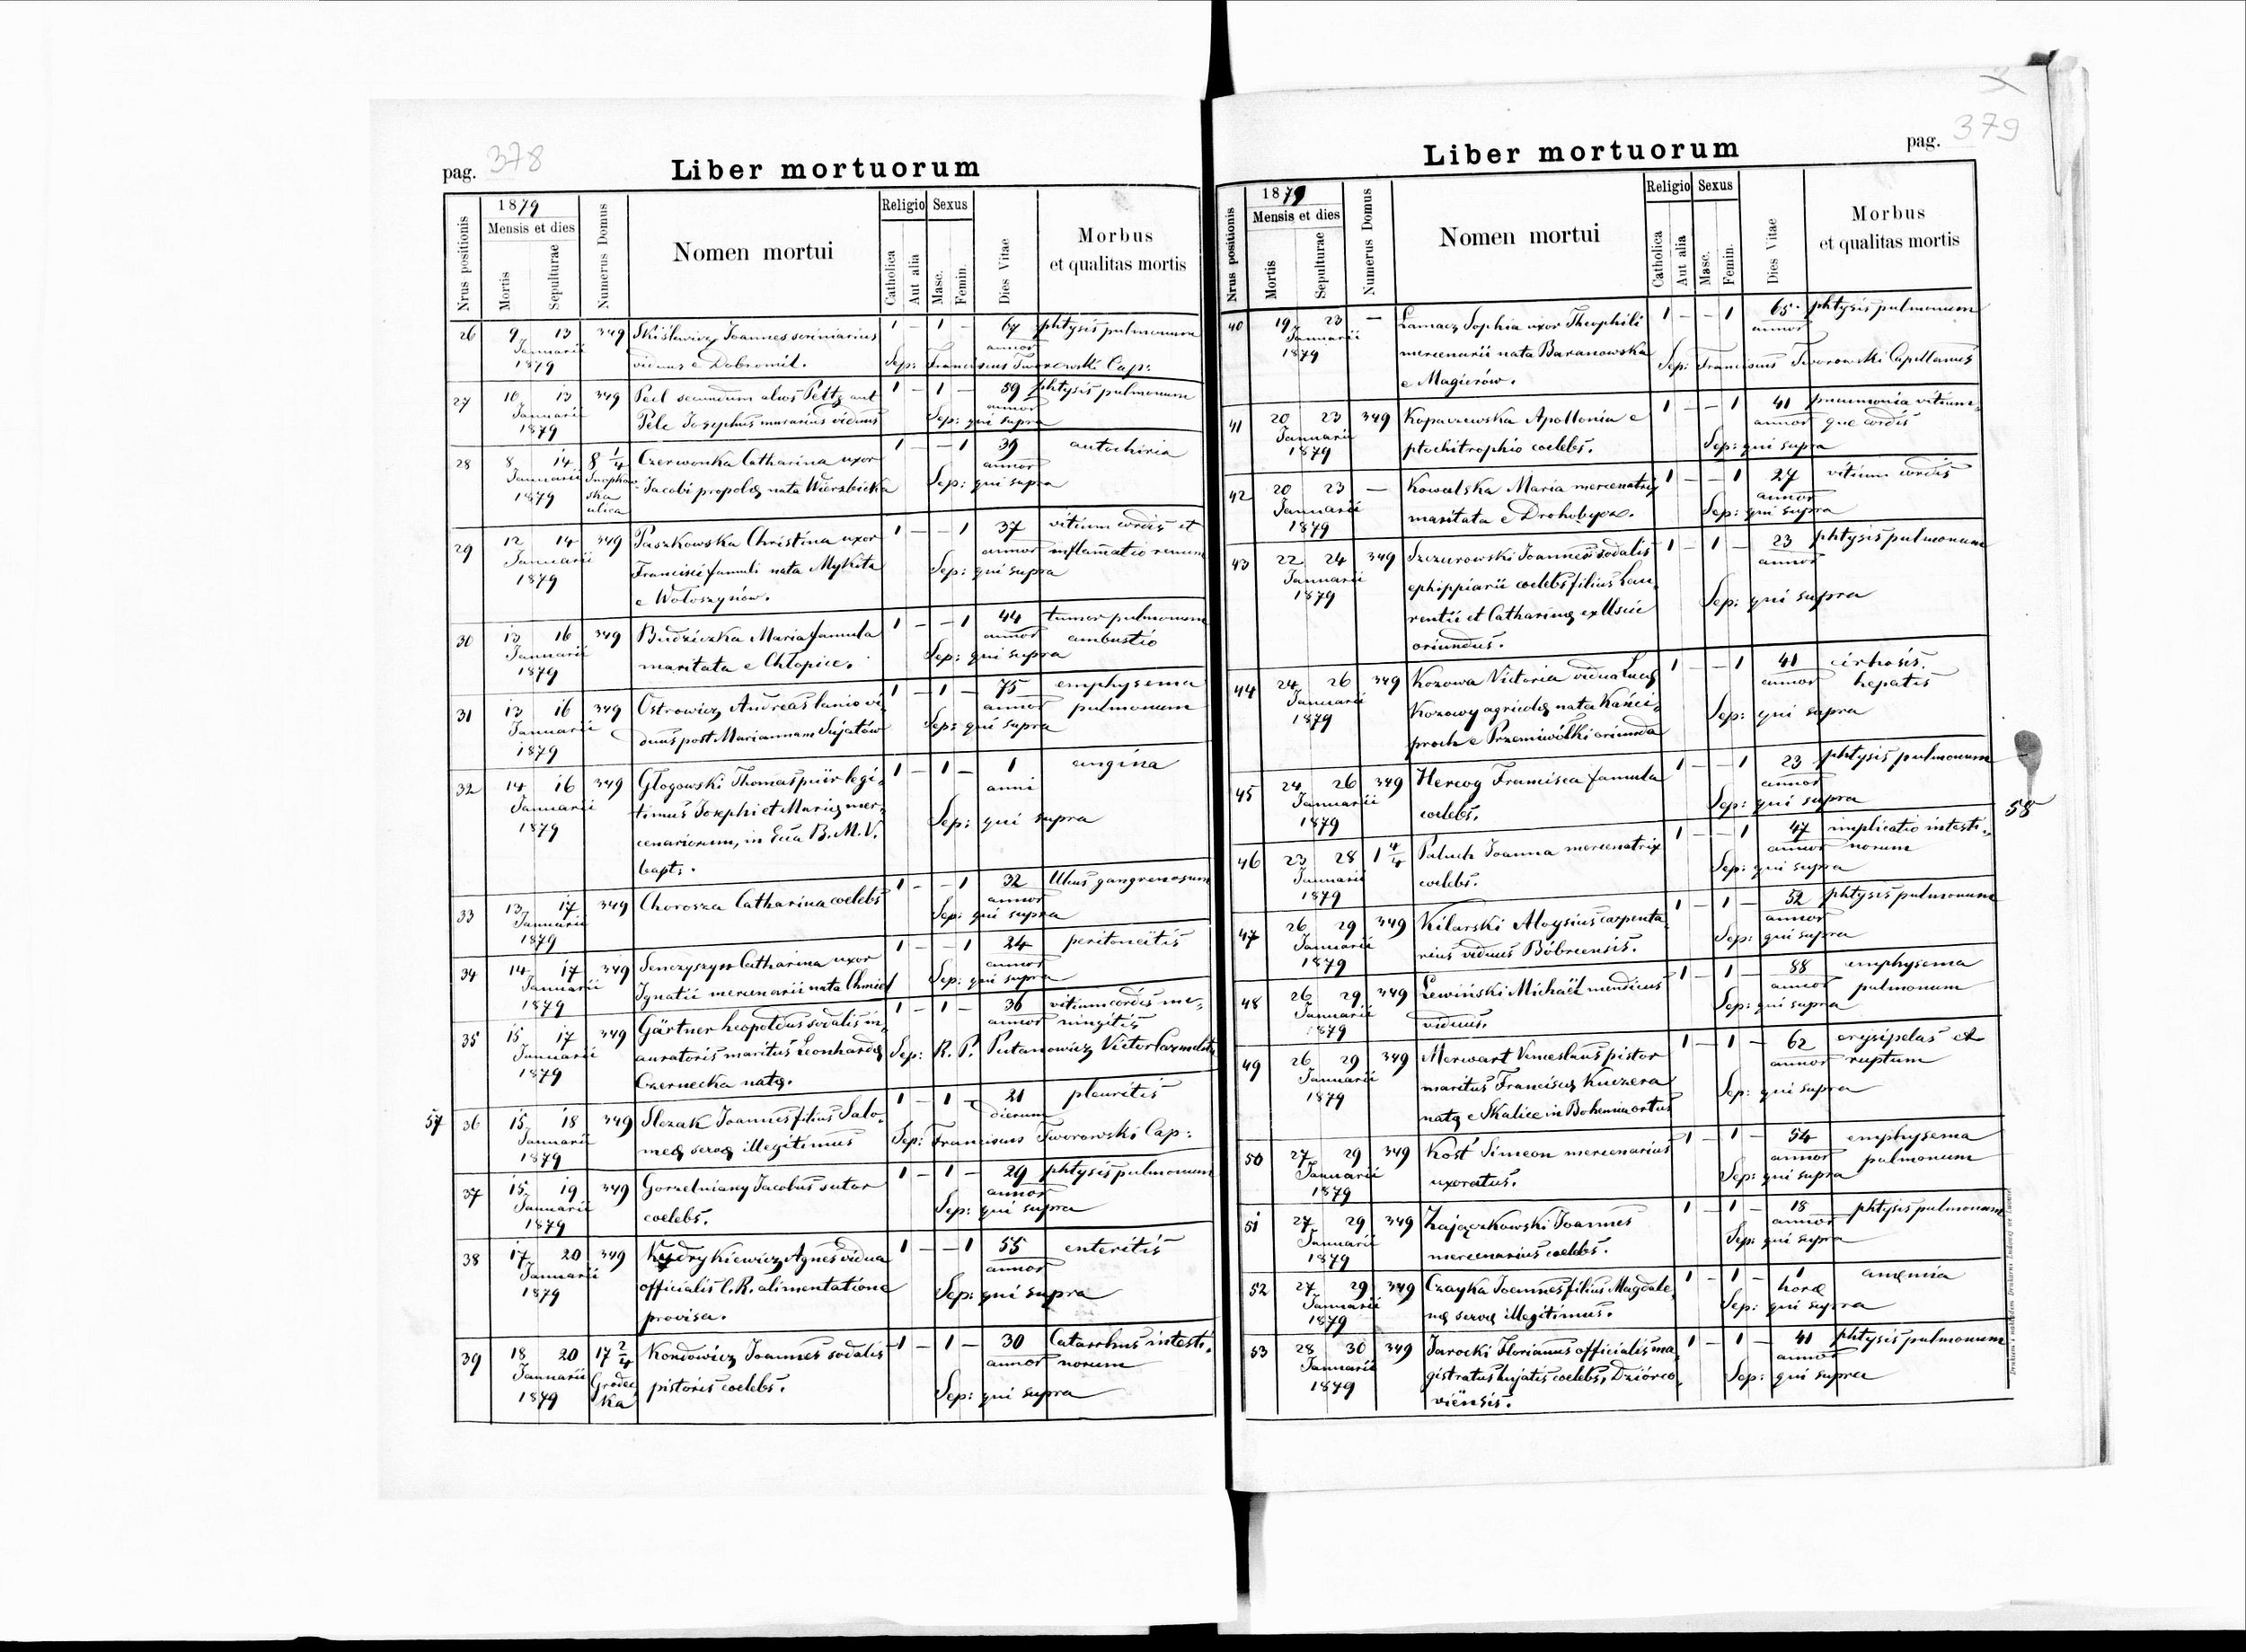 pag. 378
Liber mortuorum
Nrus positionis
1879
Mensis et dies
Mortis
Sepulturae
Numerus Domus
Nomen mortui
Religio
Catholica
Aut alia
Sexus
Masc.
Femin.
Dies Vitae
Morbus
et qualitas mortis
26 9 13 349 Joannes scriniarius 1 - 1 - 67 phtysis pulmonum
Januarii annor
1879 viduus e Dobromil. Sep: Franciscus Tworowski Cap:
27 10 13 349 Pecl secundum alios Peltz aut 1 - 1 - 59 phtysis pulmonum
Januarii annor
1879 Pele Josephus murarius viduus Sep: qui supra
28 8 14 8 1/4 Czerwonka Catharina uxor 1 - - 1 39 autochiria
Januarii annor
1879 ska Jacobi propolę nata Wierzbicka Sep: qui supra
ulica
29 12 14 349 Paszkowska Christina uxor 1 - - 1 37 vitium cordis et
Januarii Francisci famuli nata Mykita annor inflamatio renum
1879 e Wołoszynów. Sep: qui supra
30 13 16 349 Budziczka Maria famula 1 - - 1 44 tumor pulmonum
Januarii annor ambustio
1879 maritata e Chłopice. Sep: qui supra
31 13 16 349 Ostrowicz Andreas lanio vi- 1 - 1 - 75 emphysema
Januarii annor pulmonum
1879 duus post Mariannam Sujatów Sep: qui supra
32 14 16 349 Głogowski Thomas puer legi- 1 - 1 - 1 angina
Januarii timus Josephi et Marię mer- anni
1879 cenariorum, in Ecća B. M. V. Sep: qui supra
bapt.
33 13 17 349 Chorosza Catharina coelebs 1 - - 1 32 Ulcus gangrenosum
Januarii annor
1879 Sep: qui supra
34 14 17 349 Senczyszyn Catharina uxor 1 - - 1 24 peritoneitis
Januarii annor
1879 Ignatii mercenarii nata Chmiel Sep: qui supra
35 15 17 349 Gärtner Leopoldus sodalis in- 1 - 1 - 36 vitium cordis me-
Januarii auratoris maritus Leonhardę annor ningitis
1879 Czernecka natę. Sep: R. P. Putanowicz Victor Carmelita
57 36 15 18 349 Slezak Joannes filius Salo- 1 - 1 - 21 pleuritis
Januarii dierum
1879 meę servę illegitimus Sep: Franciscus Tworowski Cap:
37 15 19 349 Gorzelniany Jacobus sutor 1 - 1 - 29 phtysis pulmonum
Januarii annor
1879 coelebs. Sep: qui supra
38 17 20 349 Agnes vidua 1 - - 1 55 enteritis
Januarii officialis C. R. alimentatione annor
1879 provisa. Sep: qui supra
39 18 20 17 2/4 Kondowicz Joannes sodalis 1 - 1 - 30 Catarrhus intesti-
Januarii Grodec annor norum
1879 ka pistoris coelebs. Sep: qui supra
pag. 379
Liber mortuorum
Nrus positionis
1879
Mensis et dies
Mortis
Sepulturae
Numerus Domus
Nomen mortui
Religio
Catholica
Aut alia
Sexus
Masc.
Femin.
Dies Vitae
Morbus
et qualitas mortis
40 19 23 — Łamacz Sophia uxor Theophili 1 - - 1 65 phtysis pulmonum
Januarii mercenarii nata Baranowska annor
1879 e Magierów. Sep: Franciscus Tworowski Capellanus
41 20 23 349 Kopaczewska Apollonia e 1 - - 1 41 pneumonia vitium-
Januarii annor que cordis
1879 ptochitrophio coelebs. Sep: qui supra
42 20 23 — Kowalska Maria mercenatrix 1 - - 1 27 vitium cordis
Januarii annor
1879 maritata e Drohobycz. Sep: qui supra
43 22 24 349 Szczurowski Joannes sodalis 1 - 1 - 23 phtysis pulmonum
Januarii ephippiarii coelebs filius Lau- annor
1879 rentii et Catharinę ex Uście Sep: qui supra
oriundus.
44 24 26 349 Kozowa Victoria vidua Lucę 1 - - 1 41 cirhosis
Januarii Kozowy agricolę nata Kańci- annor hepatis
1879 proch e Przemiwółki oriunda Sep: qui supra
45 24 26 349 Hercog Francisca famula 1 - - 1 23 phtysis pulmonum
Januarii annor
1879 coelebs. Sep: qui supra
58
46 23 28 1 4/4 Paluch Joanna mercenatrix 1 - - 1 47 implicatio intesti-
Januarii annor norum
1879 coelebs. Sep: qui supra
47 26 29 349 Kilarski Aloysius carpenta- 1 - 1 - 52 phtysis pulmonum
Januarii annor
1879 rius viduus Bóbrcensis. Sep: qui supra
48 26 29 349 Lewiński Michaël mendicus 1 - 1 - 88 emphysema
Januarii annor pulmonum
1879 viduus. Sep: qui supra
49 26 29 349 Merwart Venceslaus pistor 1 - 1 - 62 erysipelas et
Januarii maritus Franciscę Kuczera annor ruptum
1879 natę e Skalice in Bohemia ortus Sep: qui supra
50 27 29 349 Kość Simeon mercenarius 1 - 1 - 54 emphysema
Januarii annor pulmonum
1879 uxoratus. Sep: qui supra
51 27 29 349 Zajączkowski Joannes 1 - 1 - 18 phtysis pulmonum
Januarii annor
1879 mercenarius coelebs. Sep: qui supra
52 27 29 349 Czayka Joannes filius Magdale- 1 - 1 - 1 anęmia
Januarii horę
1879 nę servę illegitimus. Sep: qui supra
53 28 30 349 Jarocki Florianus officialis ma- 1 - 1 - 41 phtysis pulmonum
Januarii gistratus hujatis coelebs, Dziórco- annor
1879 viënsis. Sep: qui supra